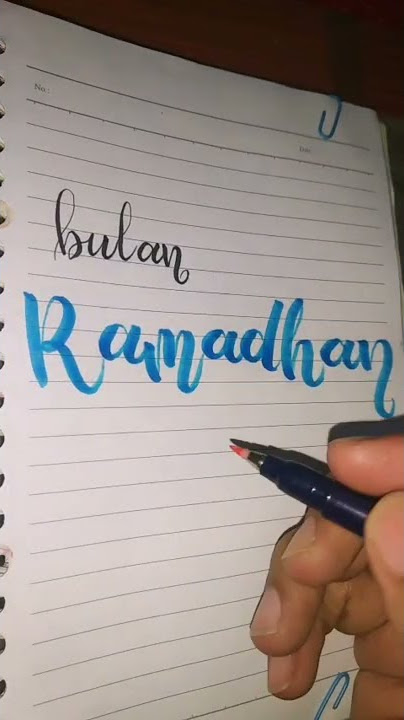 No.:
Date:
bulan
Ramadhan